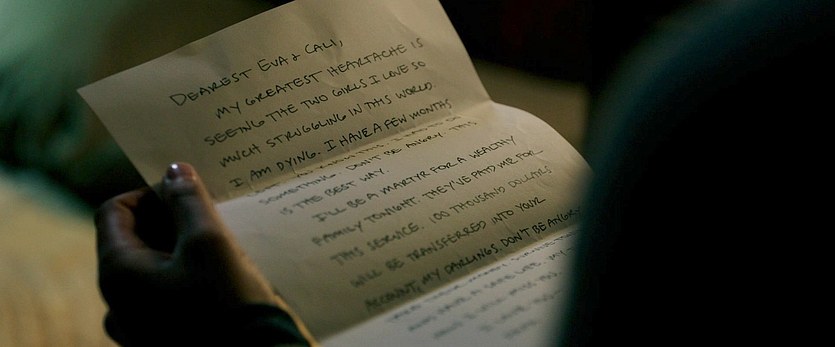 DEAREST EVA & CALI,
MY GREATEST HEARTACHE IS
SEEING THE TWO GIRLS I LOVE SO
MUCH STRUGGLING IN THIS WORLD
I AM DYING. I HAVE A FEW MONTHS
SOMETHING. DON'T BE ANGRY. THIS
IS THE BEST WAY.
I'LL BE A MARTYR FOR A WEALTHY
FAMILY TONIGHT. THEY'VE PAID ME FOR
THIS SERVICE. 100 THOUSAND DOLLARS
WILL BE TRANSFERRED INTO YOUR
ACCOUNT, MY DARLINGS. DON'T BE ANGRY